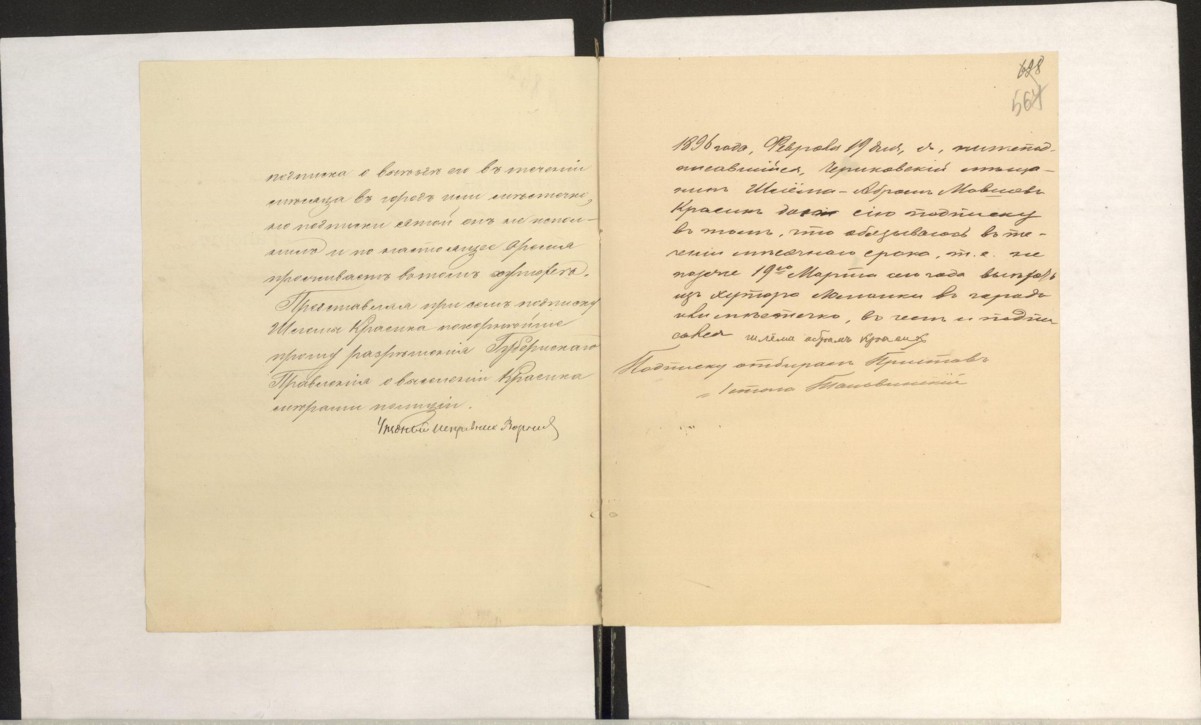 подписка о выѣздѣ его въ теченіи
мѣсяца въ городъ или мѣстечко,
но подписки этой онъ не испол-
нилъ и по настоящее время
проживаетъ въ томъ хуторѣ.
Представляя при семъ подписку
Шлемы Красика покорнѣйше
прошу разрѣшенія Губернскаго
Правленія о выселеніи Красика
мѣрами полиціи.
Уѣздный исправникъ
698
564
1896 года, Февраля 19 дня, я, нижепод-
писавшійся, Чериковскій мѣща-
нинъ Шлёма-Абрамъ Мовшовъ
Красикъ далъ сію подписку
въ томъ, что обязываюсь въ те-
ченіи мѣсячнаго срока, т.е. не
позже 19го Марта сего года выѣхать
изъ хутора въ городъ
или мѣстечко, въ чемъ и подпи
суюсь шлёма абрамъ красикъ
Подписку отбиралъ Приставъ
1 стана